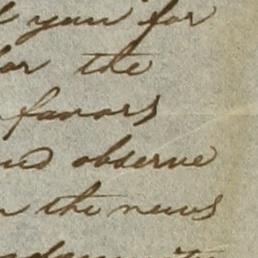 your for
for the
favors
and observe
the news